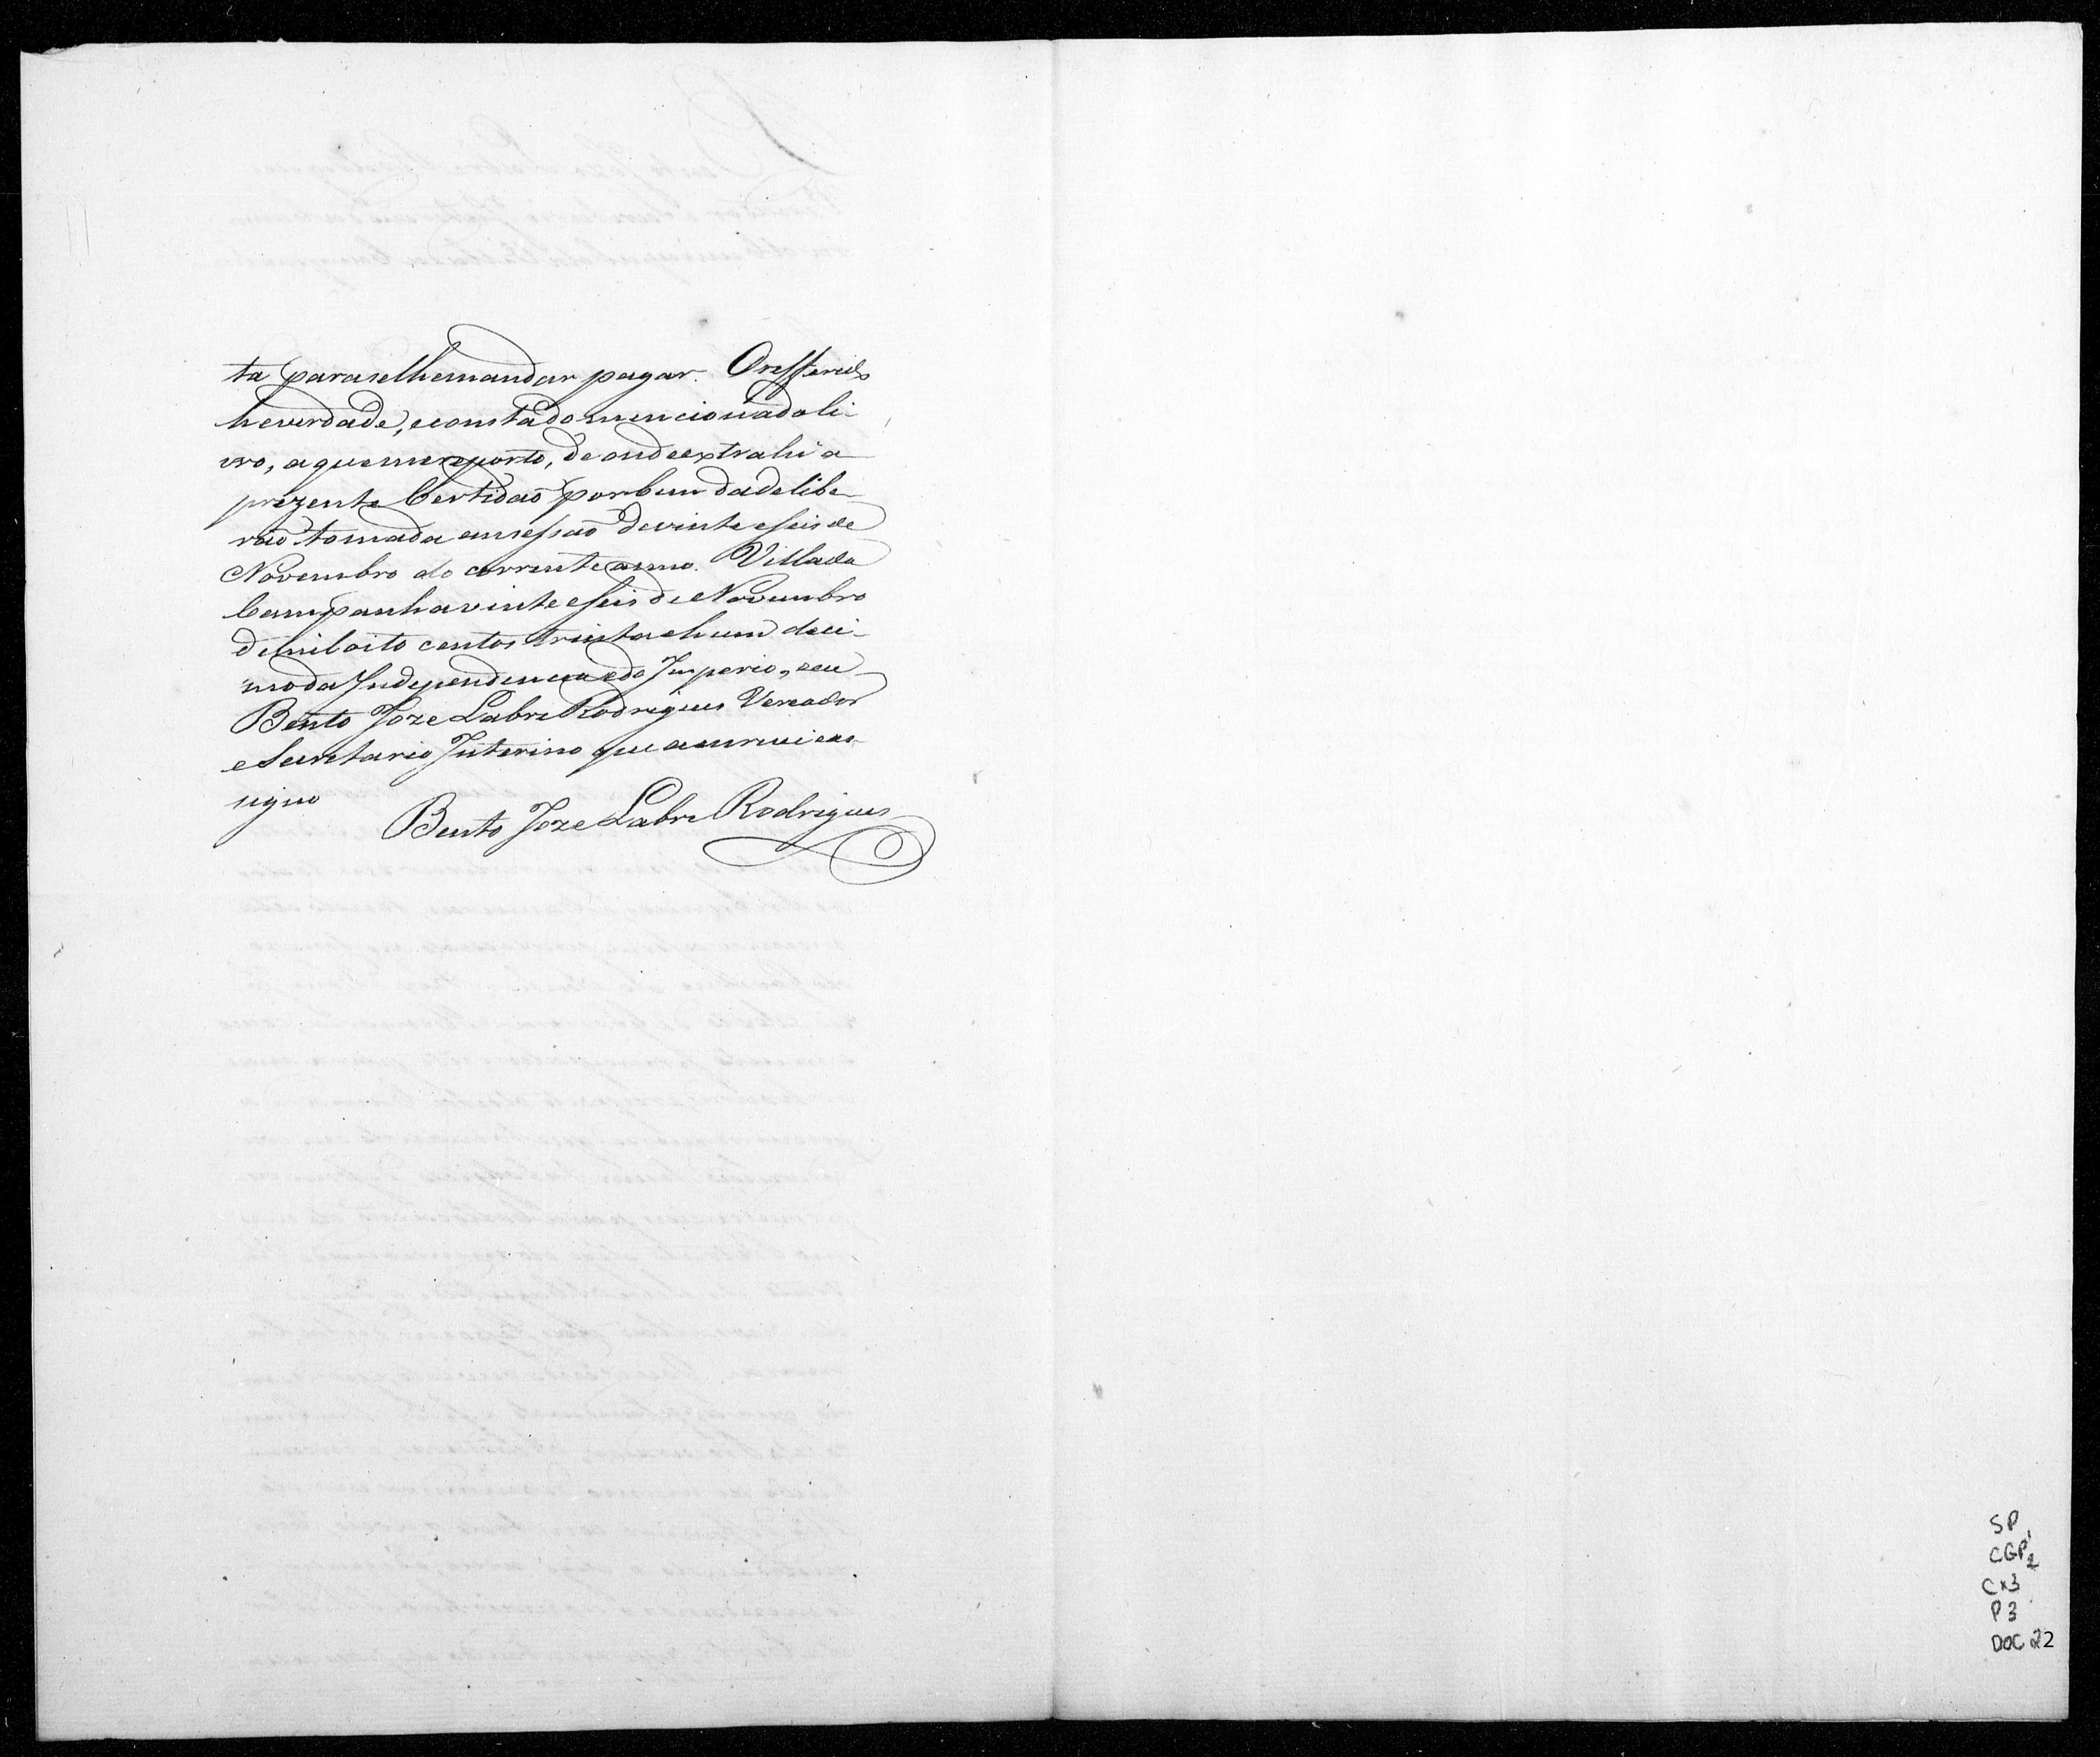 ta para se lhe mandar pagar. O refferido
he verdade, e consta do mencionado li-
vro, a que me reporto, de onde extrahi a
prezente Certidaõ por bem da delibe-
raõ tomada em sessaõ de vinte e seis de
Novembro do corrente anno. Villa da
Campanha vinte e seis de Novembro
de mil oito centos trinta e hum deci-
mo da Independencia e do Imperio, e eu
Bento Joze Labre Rodrigues Vereador
e Secretario Interino que a escrevi e as-
signo
Bento Joze Labre Rodrigues
SP
CGP¹2
Cx3
P3
DOC 22